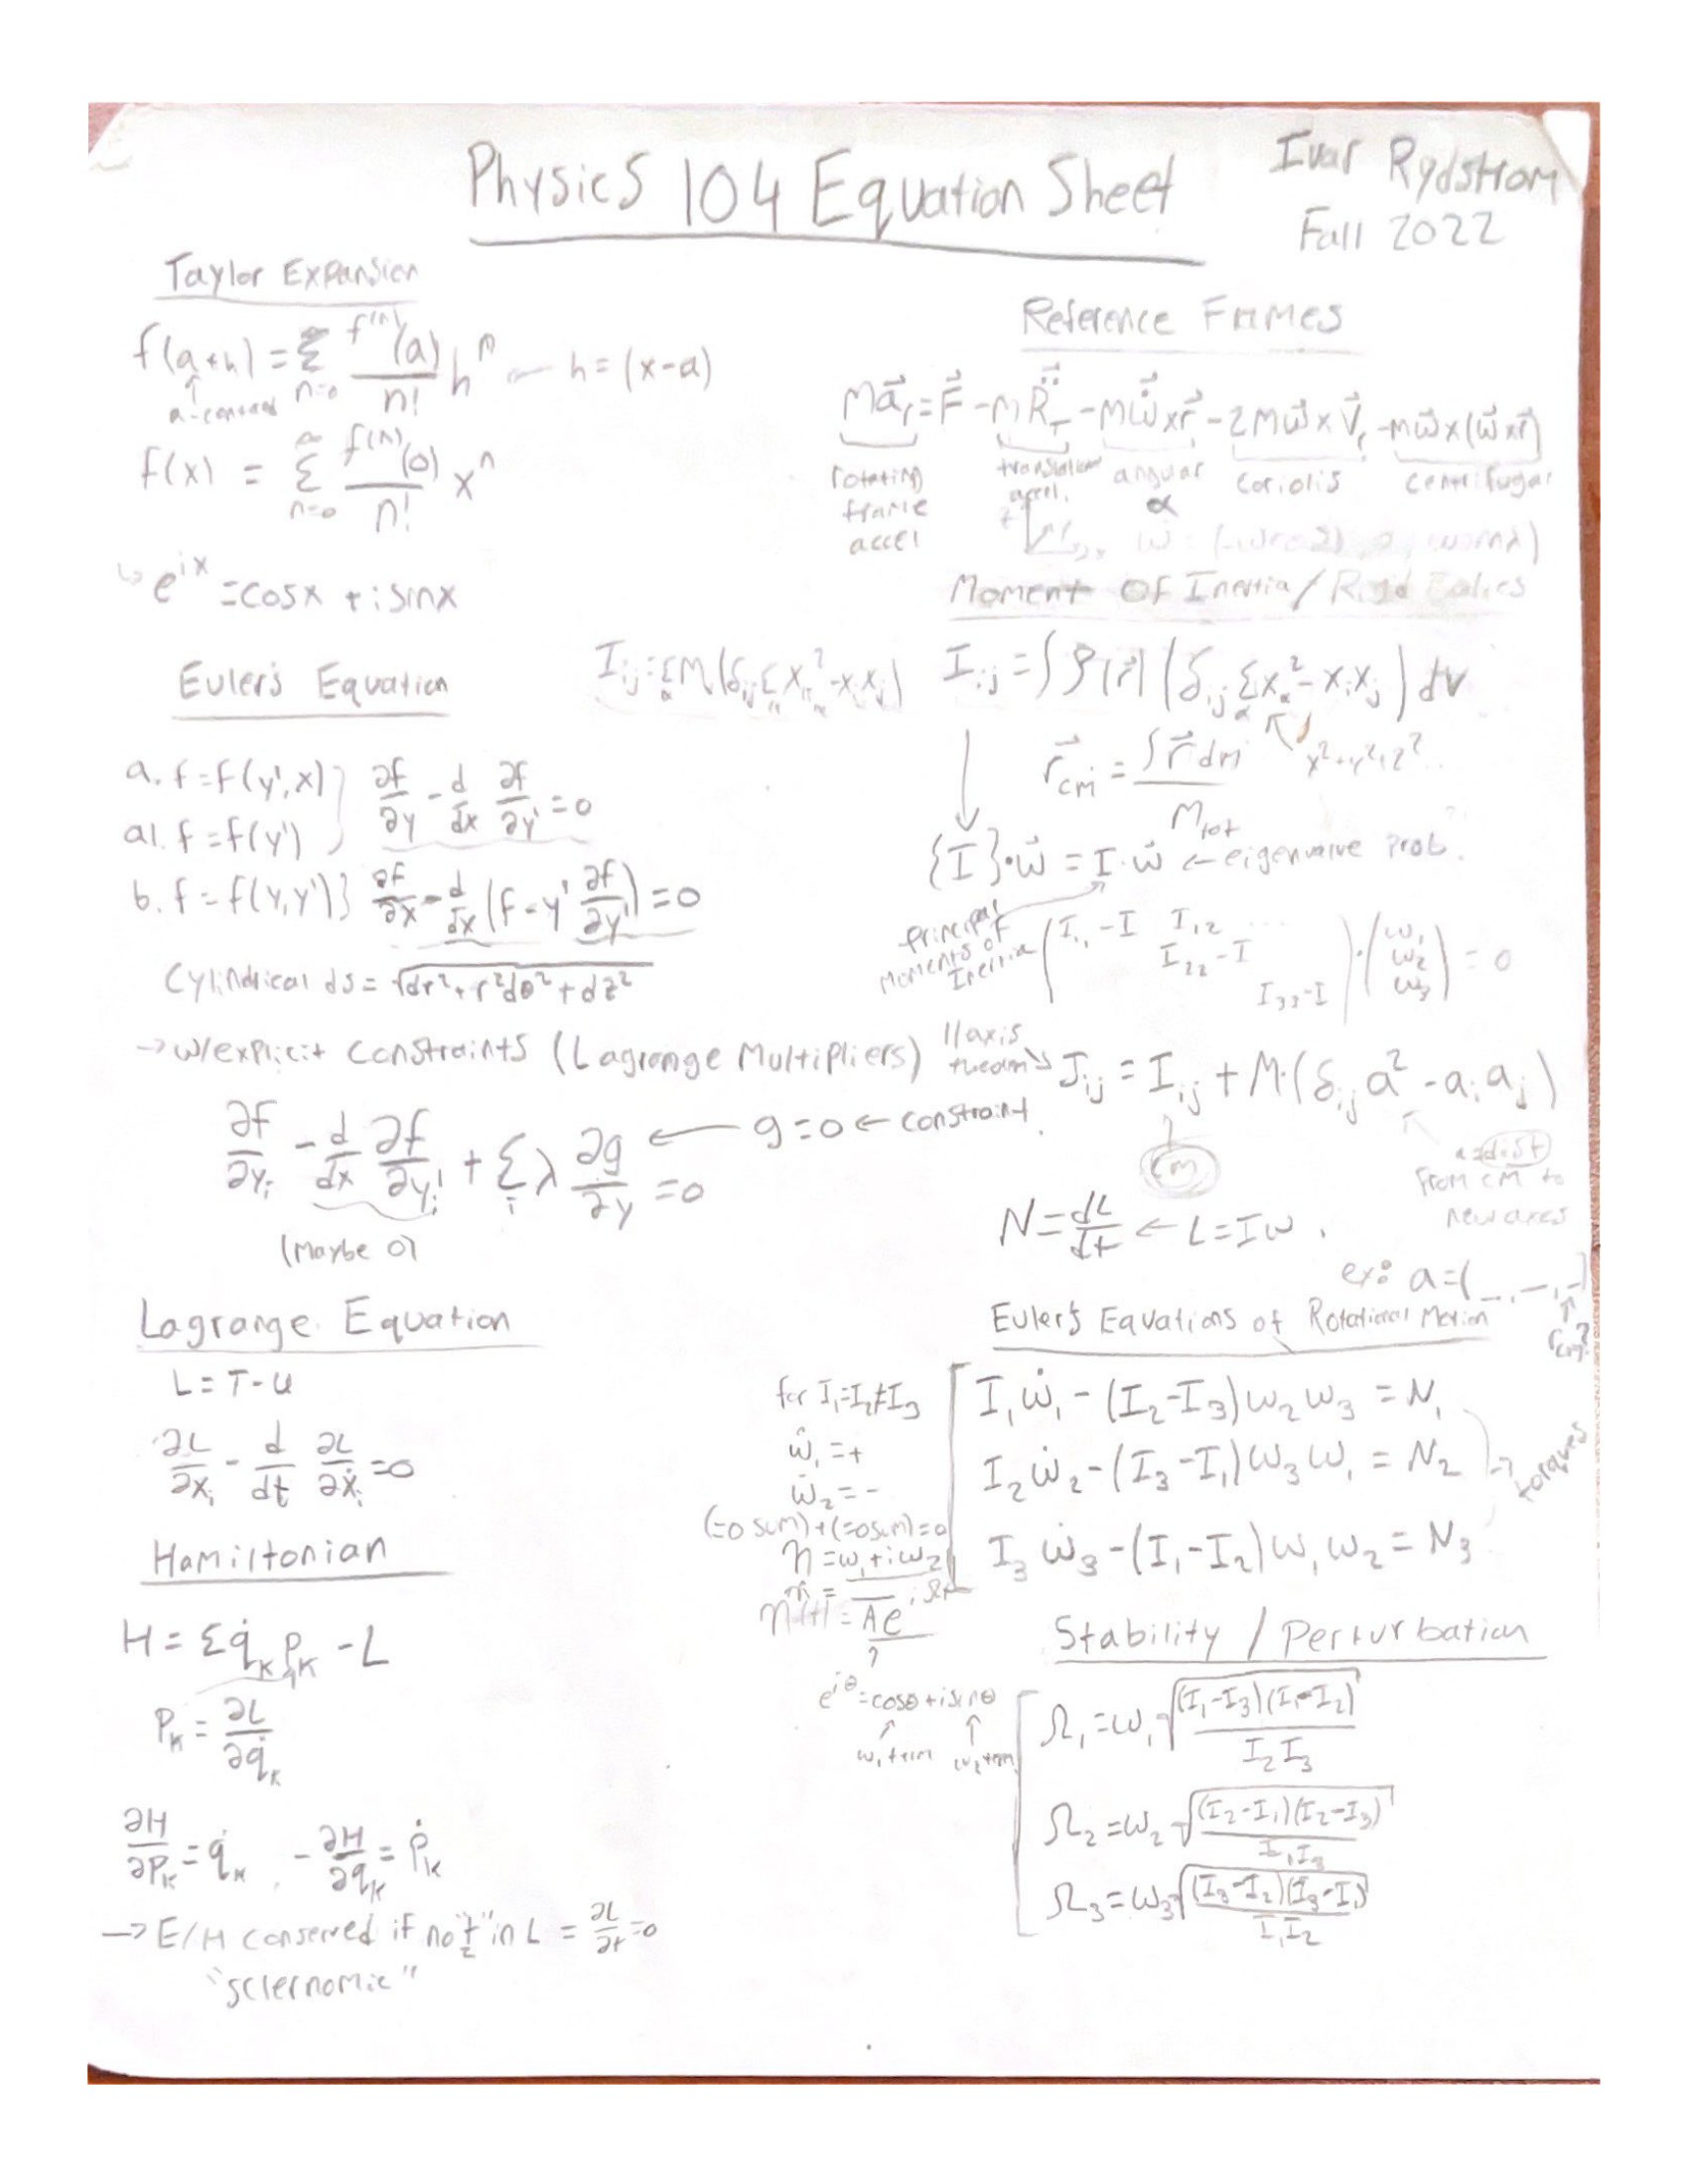 Physics 104 Equation Sheet
Ivar Rydstrom
Fall 2022
Taylor Expansion
f(a+h) = Σ_{n=0}^∞ f^{(n)}(a)/n! h^n ← h = (x-a)
a-centered
f(x) = Σ_{n=0}^∞ f^{(n)}(0)/n! x^n
↳ e^{ix} = cosx + i sinx
Euler's Equation
a. f = f(y', x)
a1. f = f(y')
} ∂f/∂y - d/dx ∂f/∂y' = 0
b. f = f(y, y') } ∂f/∂x - d/dx (f - y' ∂f/∂y') = 0
Cylindrical ds = √(dr² + r²dθ² + dz²)
→ w/explicit constraints (Lagrange Multipliers)
∂f/∂y_i - d/dx ∂f/∂y_i' + Σ_i λ ∂g/∂y = 0 ← g=0 ← constraint.
(maybe 0)
Lagrange Equation
L = T - U
∂L/∂x_i - d/dt ∂L/∂ẋ_i = 0
Hamiltonian
H = Σ q̇_k p_k - L
p_k = ∂L/∂q̇_k
∂H/∂p_k = q̇_k , -∂H/∂q_k = ṗ_k
→ E/H conserved if no "t" in L = ∂L/∂t = 0
"sclernomic"
Reference Frames
m a⃗_r = F⃗ - m R̈⃗_T - m ω̇⃗ × r⃗ - 2m ω⃗ × v⃗_r - m ω⃗ × (ω⃗ × r⃗)
rotating frame accel
translational accel.
angular α
coriolis
centrifugal
Moment of Inertia / Rigid Bodies
I_ij = Σ_α m (δ_ij Σ x² - x_i x_j)
I_ij = ∫ ρ(r⃗) (δ_ij Σ_α x_α² - x_i x_j) dv
x² + y² + z² ..
r⃗_cm = ∫ r⃗ dm / M_tot
{I} · ω⃗ = I · ω⃗ ← eigenvalue prob.
principal
moments of
Inertia
( I_11 - I I_12 ... I_22 - I I_33 - I ) · ( ω_1 ω_2 ω_3 ) = 0
// axis
J_ij = I_ij + M · (δ_ij a² - a_i a_j)
cm
a = dist
from cm to
new axes
N = dL/dt ← L = Iω .
ex: a = (_, -, -)
Euler's Equations of Rotational Motion
I_1 ω̇_1 - (I_2 - I_3) ω_2 ω_3 = N_1
I_2 ω̇_2 - (I_3 - I_1) ω_3 ω_1 = N_2
I_3 ω̇_3 - (I_1 - I_2) ω_1 ω_2 = N_3
→ torques
for I_1 = I_2 ≠ I_3
ω̇_1 = +
ω̇_2 = -
(=0 sum) + (=0 sum) = 0
η = ω_1 + iω_2
η(t) = A e^{iΩt}
e^{iθ} = cosθ + i sinθ
ω_1 term ω_2 term
Stability / Perturbation
Ω_1 = ω_1 √((I_1 - I_3)(I_1 - I_2) / I_2 I_3)
Ω_2 = ω_2 √((I_2 - I_1)(I_2 - I_3) / I_1 I_3)
Ω_3 = ω_3 √((I_3 - I_2)(I_3 - I_1) / I_1 I_2)